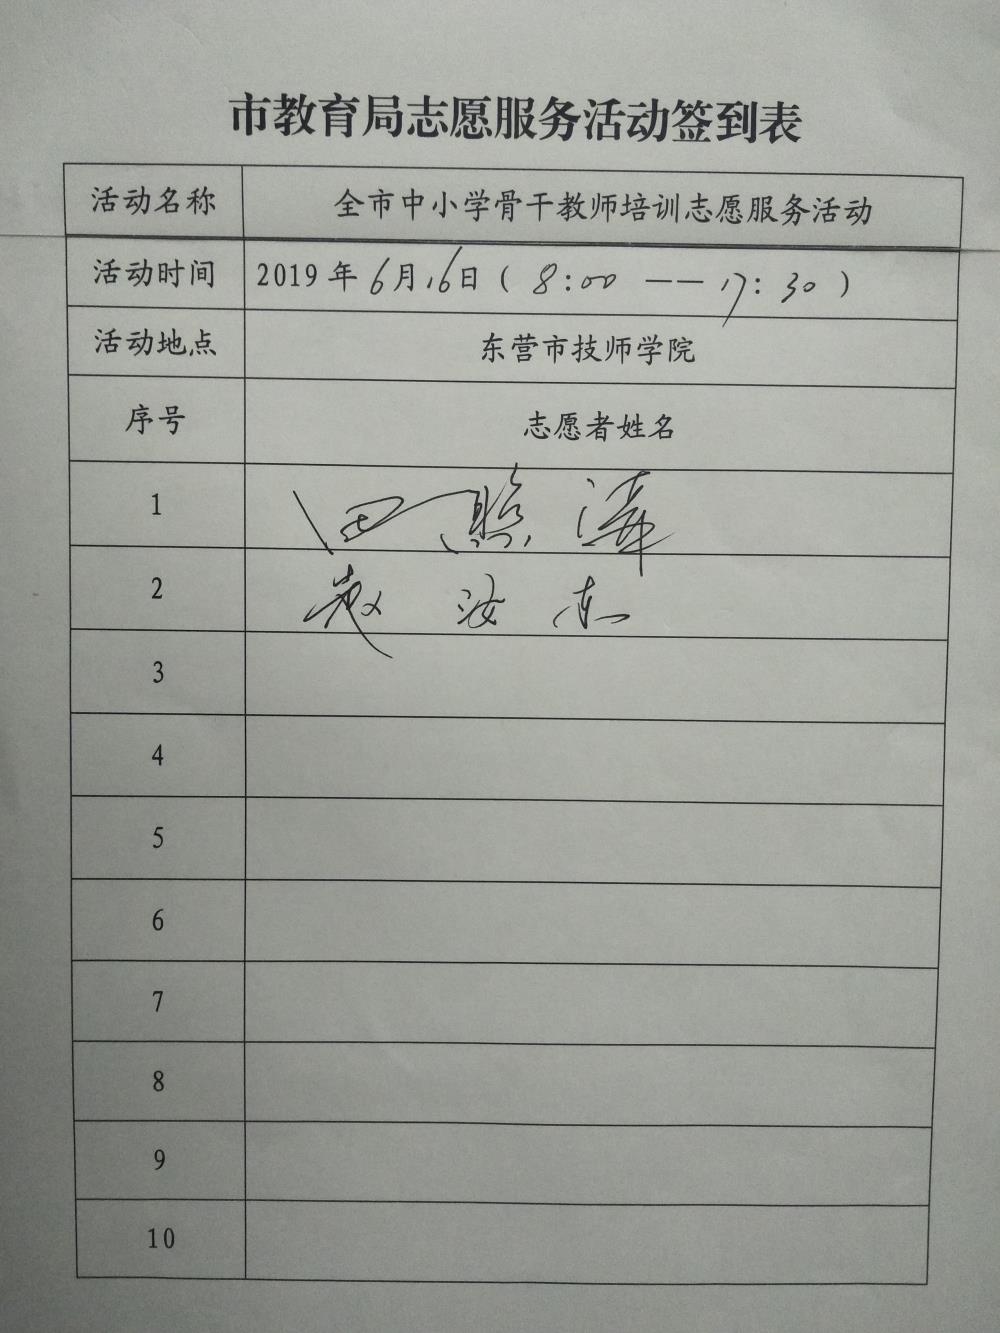 市教育局志愿服务活动签到表
活动名称 全市中小学骨干教师培训志愿服务活动
活动时间 2019年6月16日(8:00——17:30)
活动地点 东营市技师学院
序号 志愿者姓名
1 田照
2 赵汝东
3
4
5
6
7
8
9
10